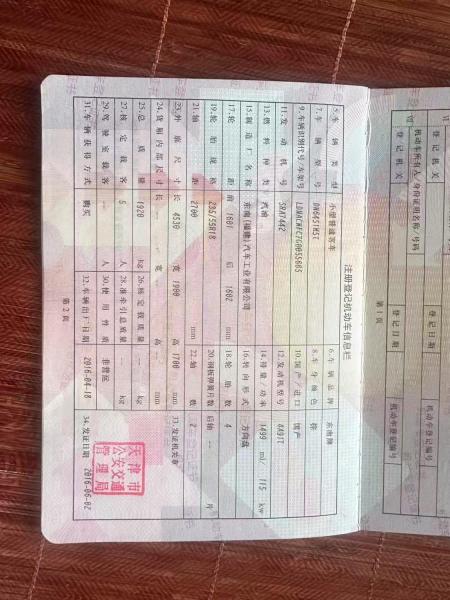 注册登记机动车信息栏
5.车辆类型 小型普通客车 6.车辆品牌 东南牌
7.车辆型号 DN6451M5T 8.车身颜色 棕
9.车辆识别代号/车架号 10.国产/进口 国产
11.发动机号 SRA7442 12.发动机型号 4A91T
13.燃料种类 汽油 14.排量/功率 1499 ml/ 115 kw
15.制造厂名称 东南(福建)汽车工业有限公司 16.转向形式 方向盘
17.轮距 前 1601 后 1602 mm 18.轮胎数 4
19.轮胎规格 235/55R18 20.钢板弹簧片数 后轴 --- 片
21.轴距 2700 mm 22.轴数 2
23.外廓尺寸 长 4530 宽 1900 高 1700 mm 33.发证机关章
24.货厢内部尺寸 长 --- 宽 --- 高 --- mm
25.总质量 1920 kg 26.核定载质量 --- kg
27.核定载客 5 人 28.准牵引总质量 --- kg
29.驾驶室载客 --- 人 30.使用性质 非营运
31.车辆获得方式 购买 32.车辆出厂日期 2016-04-18 34.发证日期 2016-06-02
天津市
公安交通
管理局
第2页
机动车所有人/身份证明名称/号码
登记机关
登记日期
机动车登记编号
登记机关
登记日期
机动车登记编号
第1页